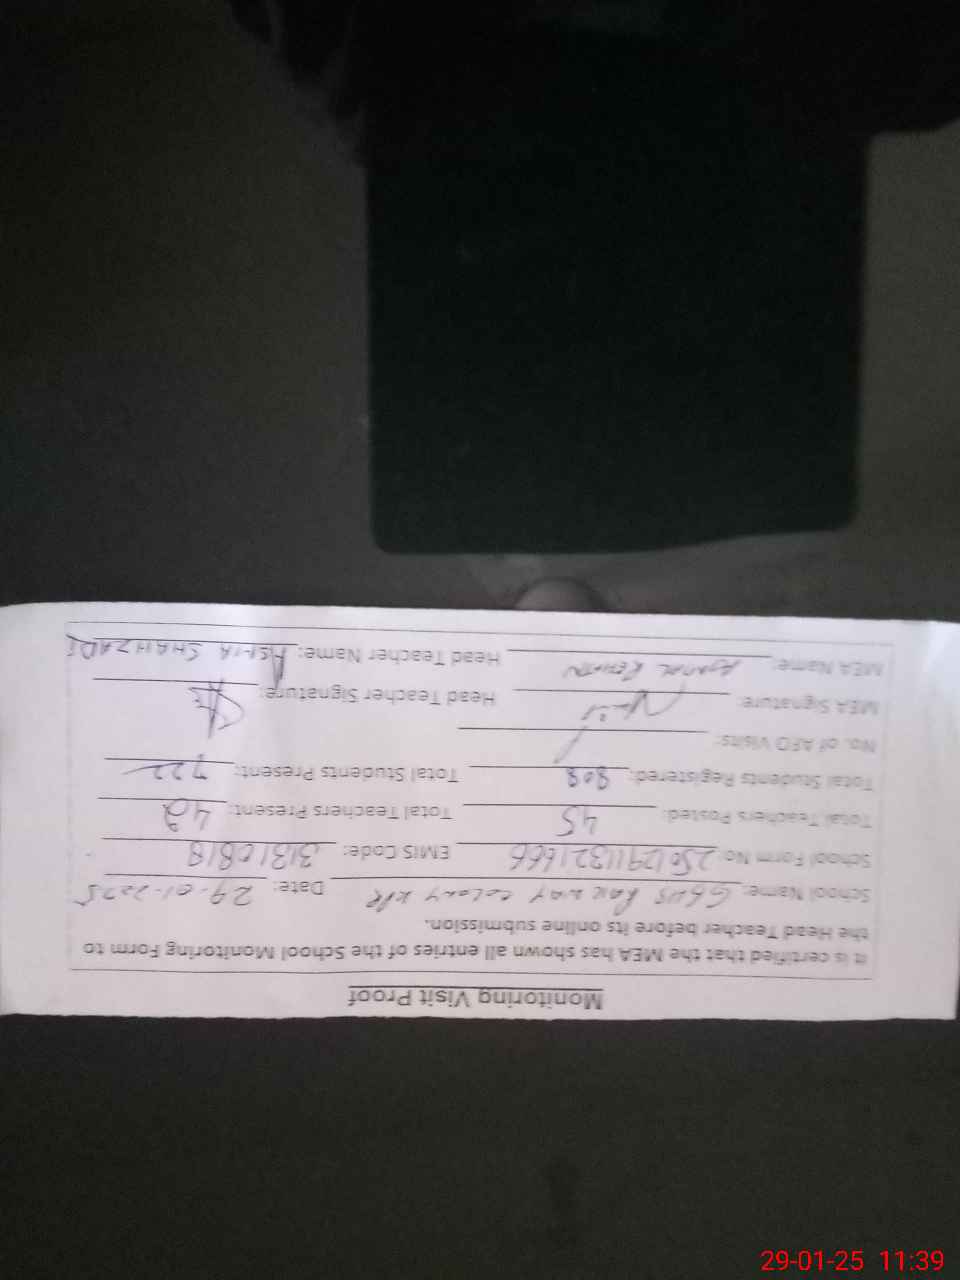 Monitoring Visit Proof
It is certified that the MEA has shown all entries of the School Monitoring Form to
the Head Teacher before its online submission.
School Name: GGHS Railway colony Date: 29-01-2025
School Form No: EMIS Code: 31310818
Total Teachers Posted: 45 Total Teachers Present: 42
Total Students Registered: 808 Total Students Present: 722
No. of AEO Visits:
MEA Signature: Head Teacher Signature:
MEA Name: Head Teacher Name: ASMA SHAHZADI
29-01-25 11:39